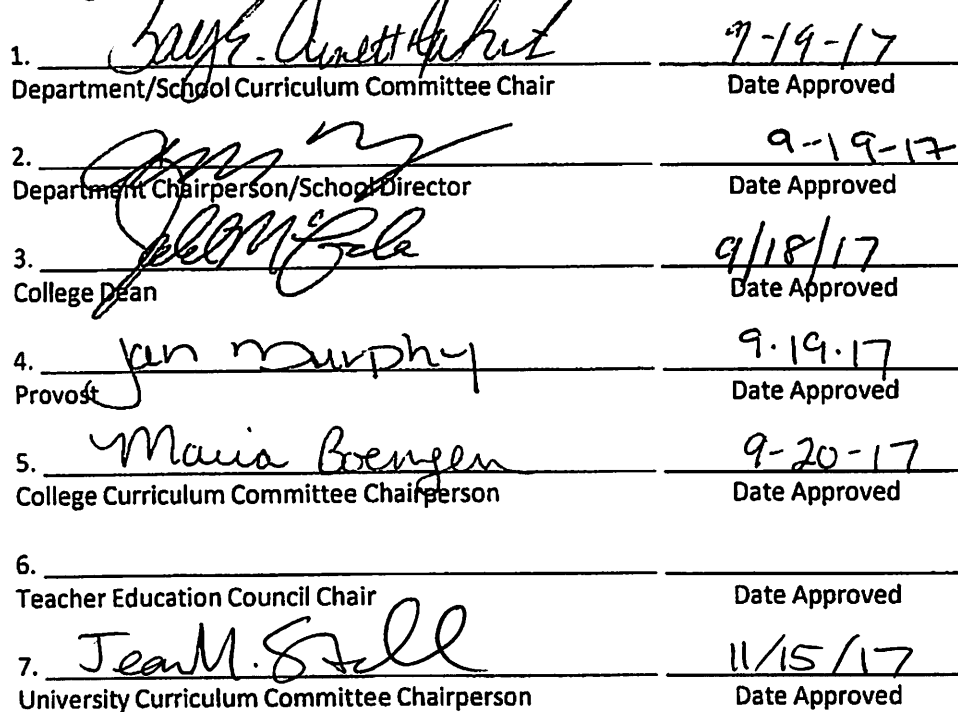 1. 9-19-17
Department/School Curriculum Committee Chair Date Approved
2. 9-19-17
Department Chairperson/School Director Date Approved
3. 9/18/17
College Dean Date Approved
4. Jan Murphy 9.19.17
Provost Date Approved
5. Maria Boerngen 9-20-17
College Curriculum Committee Chairperson Date Approved
6.
Teacher Education Council Chair Date Approved
7. Jean M. 11/15/17
University Curriculum Committee Chairperson Date Approved